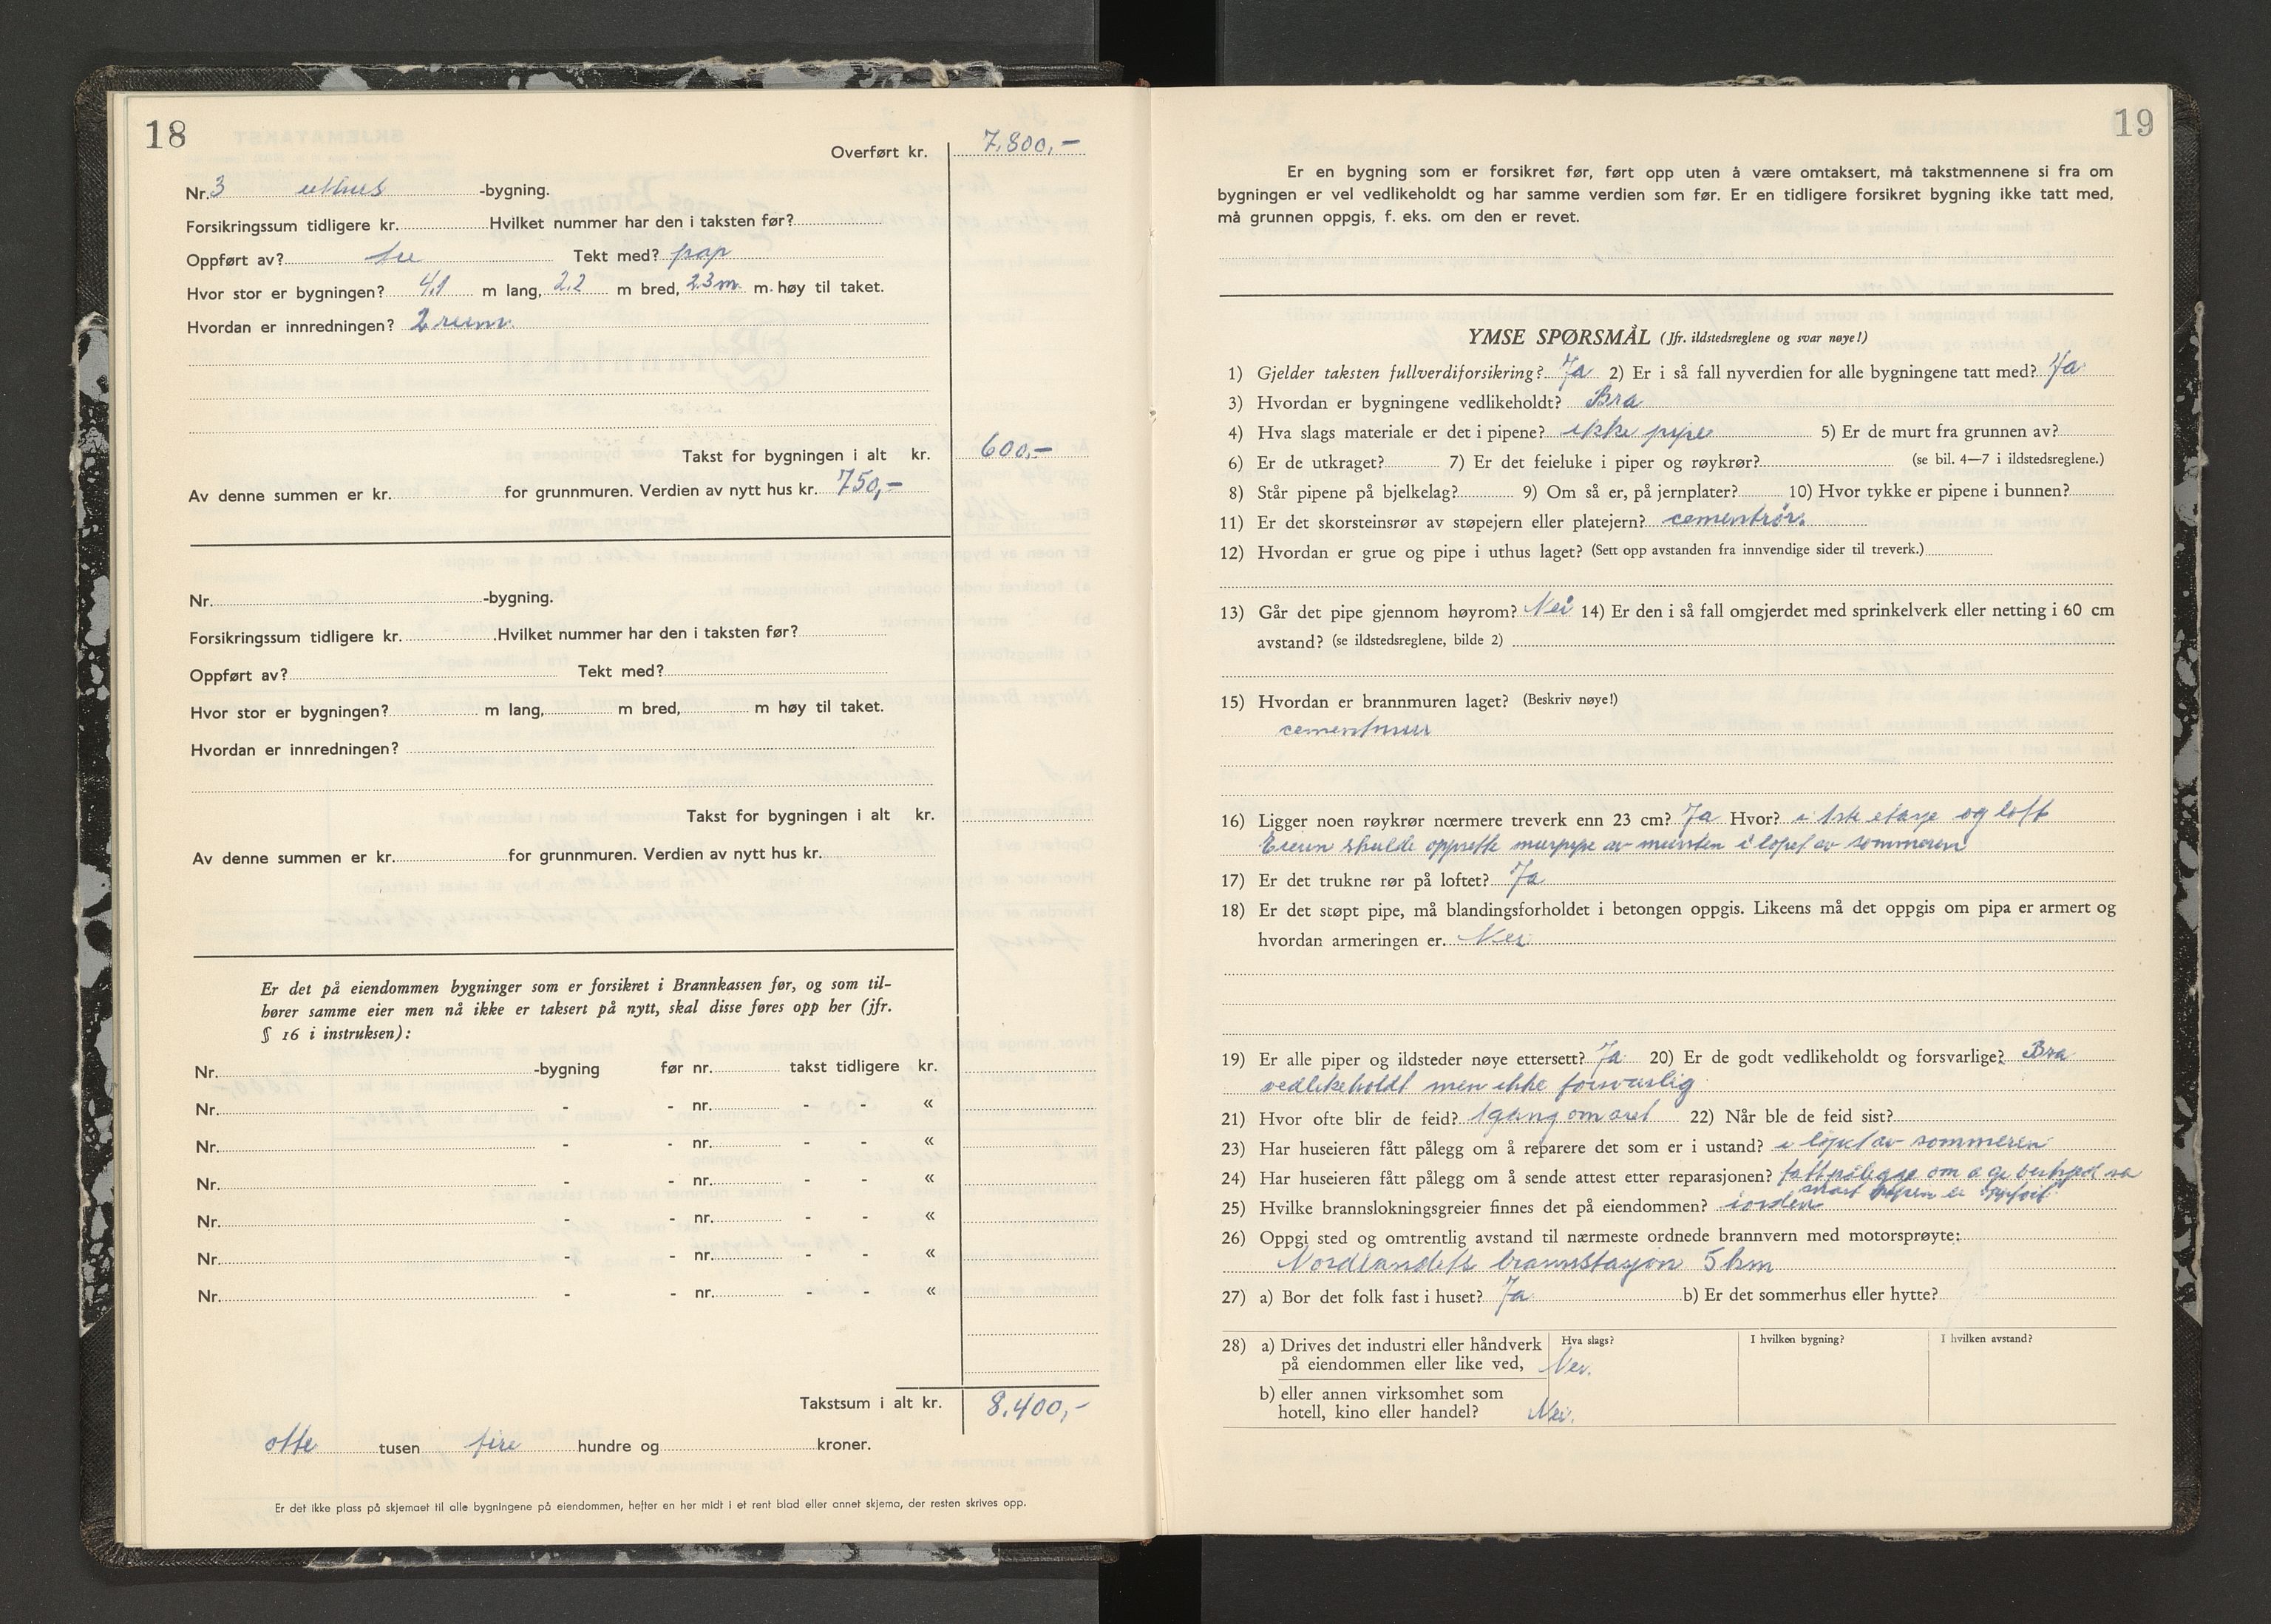 18
Overført kr. 7.800,-
Nr. 3 uthus -bygning.
Forsikringssum tidligere kr. Hvilket nummer har den i taksten før?
Oppført av? tre Tekt med? pap
Hvor stor er bygningen? 4,1 m lang, 2,2 m bred, 2,3 m. m høy til taket.
Hvordan er innredningen? 2 rum.
Takst for bygningen i alt kr. 600,-
Av denne summen er kr. for grunnmuren. Verdien av nytt hus kr. 750,-
Nr. -bygning.
Forsikringssum tidligere kr. Hvilket nummer har den i taksten før?
Oppført av? Tekt med?
Hvor stor er bygningen? m lang, m bred, m høy til taket.
Hvordan er innredningen?
Takst for bygningen i alt kr.
Av denne summen er kr. for grunnmuren. Verdien av nytt hus kr.
Er det på eiendommen bygninger som er forsikret i Brannkassen før, og som til-
hører samme eier men nå ikke er taksert på nytt, skal disse føres opp her (jfr.
§ 16 i instruksen):
Nr. -bygning før nr. takst tidligere kr.
Nr. - - nr. - - «
Nr. - - nr. - - «
Nr. - - nr. - - «
Nr. - - nr. - - «
Nr. - - nr. - - «
Nr. - - nr. - - «
Takstsum i alt kr. 8.400,-
otte tusen fire hundre og kroner.
Er det ikke plass på skjemaet til alle bygningene på eiendommen, hefter en her midt i et rent blad eller annet skjema, der resten skrives opp.
19
Er en bygning som er forsikret før, ført opp uten å være omtaksert, må takstmennene si fra om
bygningen er vel vedlikeholdt og har samme verdien som før. Er en tidligere forsikret bygning ikke tatt med,
må grunnen oppgis, f. eks. om den er revet.
YMSE SPØRSMÅL (Jfr. ildstedsreglene og svar nøye!)
1) Gjelder taksten fullverdiforsikring? Ja 2) Er i så fall nyverdien for alle bygningene tatt med? Ja
3) Hvordan er bygningene vedlikeholdt? Bra
4) Hva slags materiale er det i pipene? ikke pipe 5) Er de murt fra grunnen av?
6) Er de utkraget? 7) Er det feieluke i piper og røykrør? (se bil. 4—7 i ildstedsreglene.)
8) Står pipene på bjelkelag? 9) Om så er, på jernplater? 10) Hvor tykke er pipene i bunnen?
11) Er det skorsteinsrør av støpejern eller platejern? cementrør.
12) Hvordan er grue og pipe i uthus laget? (Sett opp avstanden fra innvendige sider til treverk.)
13) Går det pipe gjennom høyrom? Nei 14) Er den i så fall omgjerdet med sprinkelverk eller netting i 60 cm
avstand? (se ildstedsreglene, bilde 2)
15) Hvordan er brannmuren laget? (Beskriv nøye!)
cementmur
16) Ligger noen røykrør nærmere treverk enn 23 cm? Ja Hvor? i 1ste etasje og loft
Eieren skulde oppsette murpipe av mursten i løpet av sommeren
17) Er det trukne rør på loftet? Ja
18) Er det støpt pipe, må blandingsforholdet i betongen oppgis. Likeens må det oppgis om pipa er armert og
hvordan armeringen er. Nei
19) Er alle piper og ildsteder nøye ettersett? Ja 20) Er de godt vedlikeholdt og forsvarlige? Bra
vedlikeholdt men ikke forsvarlig
21) Hvor ofte blir de feid? 1 gang om året 22) Når ble de feid sist?
23) Har huseieren fått pålegg om å reparere det som er i ustand? i løpet av sommeren
24) Har huseieren fått pålegg om å sende attest etter reparasjonen? fått pålegge om å gi beskjed så
snart pipen er oppført
25) Hvilke brannslokningsgreier finnes det på eiendommen? i orden
26) Oppgi sted og omtrentlig avstand til nærmeste ordnede brannvern med motorsprøyte:
Nordlandets brannstasjon 5 km
27) a) Bor det folk fast i huset? Ja b) Er det sommerhus eller hytte?
28) a) Drives det industri eller håndverk Hva slags? I hvilken bygning? I hvilken avstand?
på eiendommen eller like ved, Nei.
b) eller annen virksomhet som
hotell, kino eller handel? Nei.